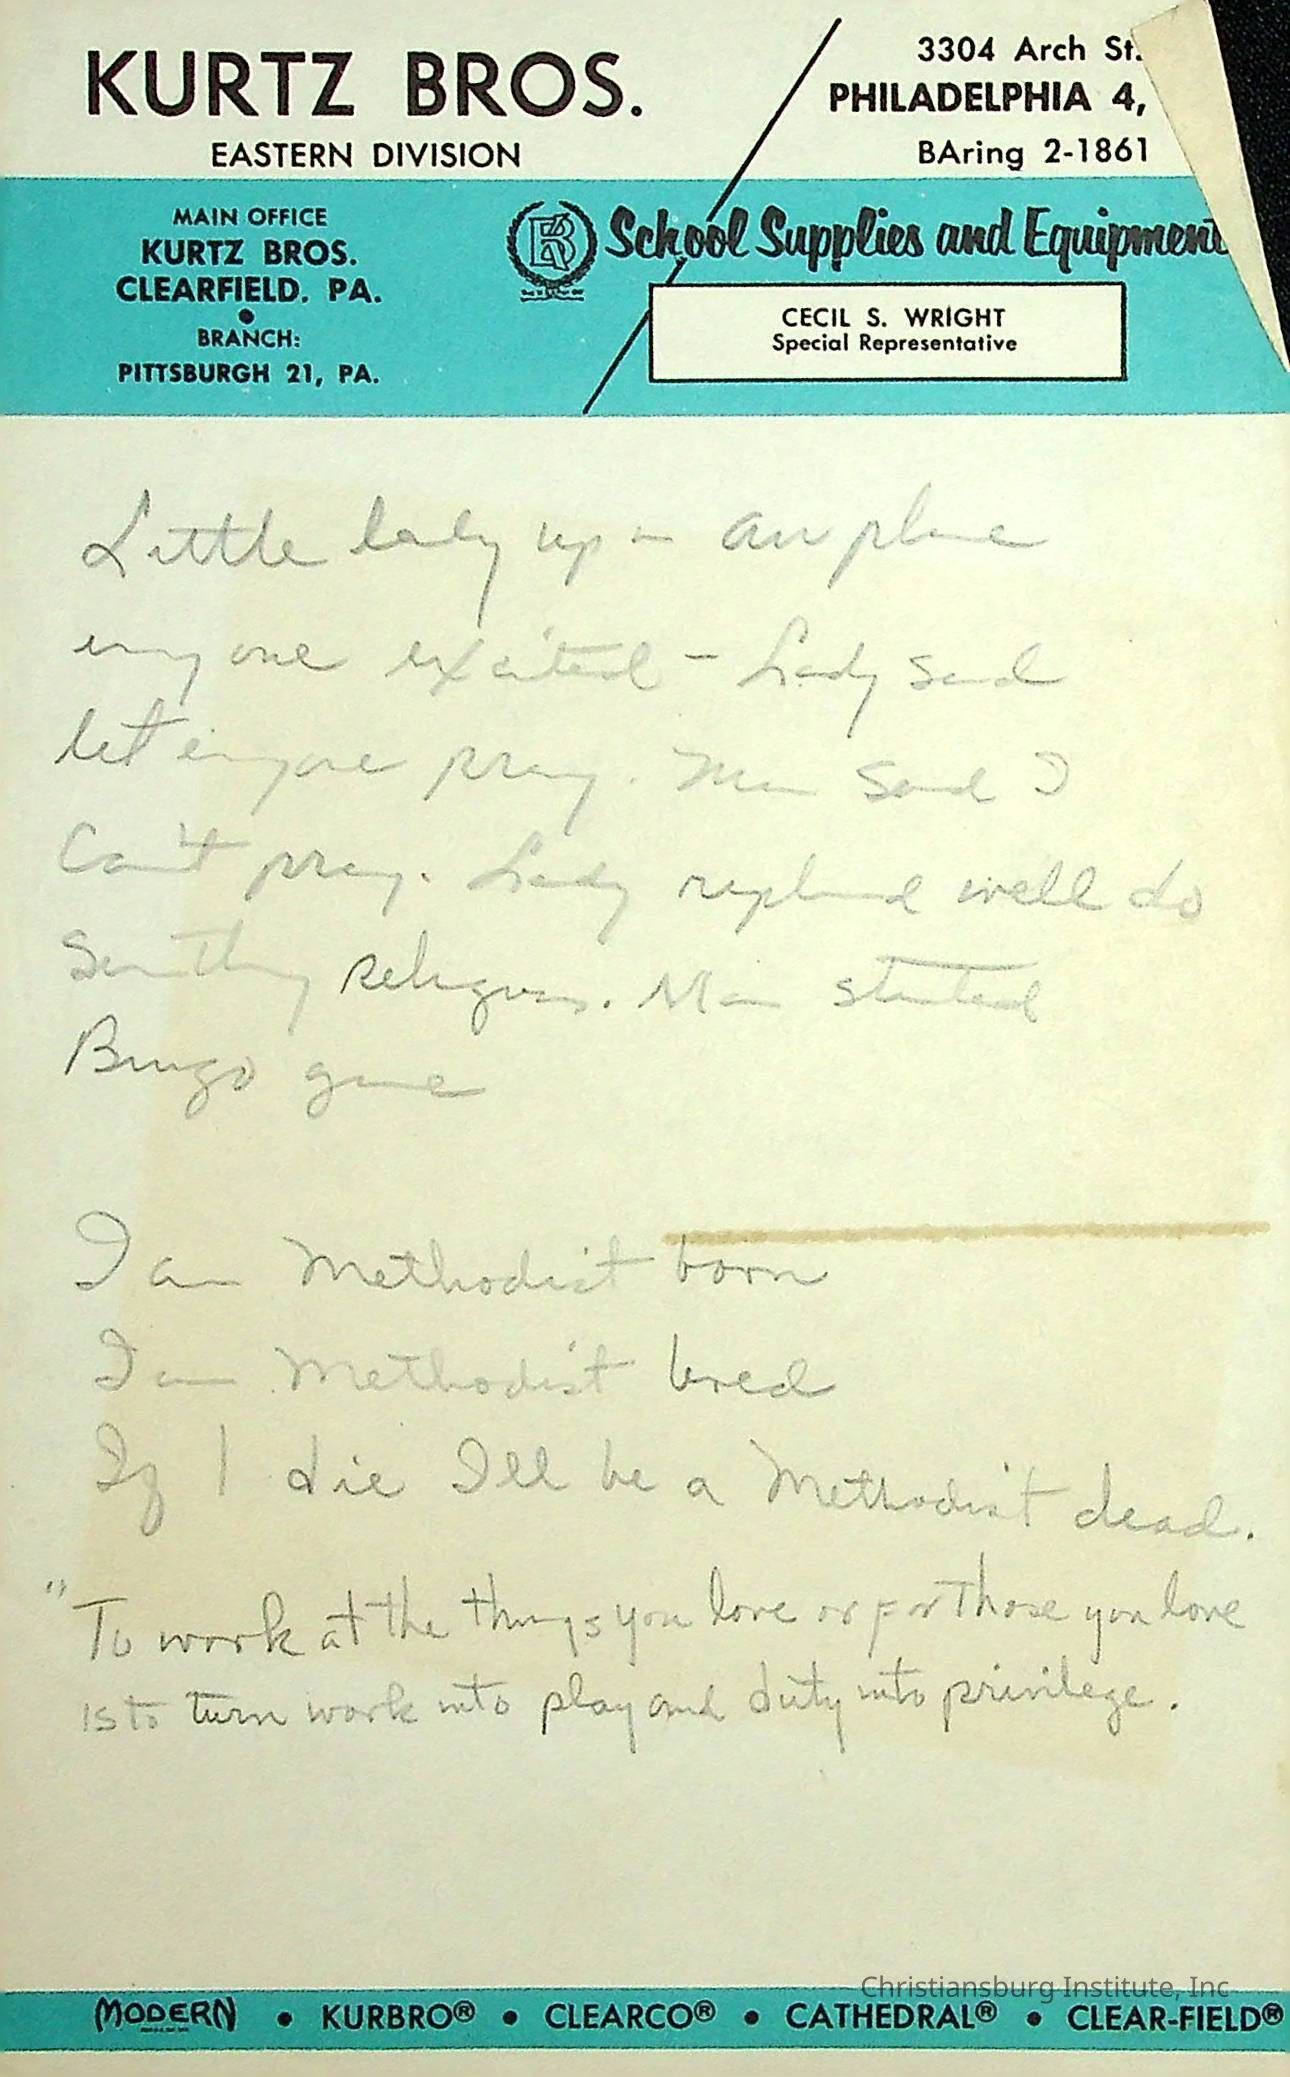 KURTZ BROS.
EASTERN DIVISION
3304 Arch St.
PHILADELPHIA 4,
BAring 2-1861
MAIN OFFICE
KURTZ BROS.
CLEARFIELD. PA.
BRANCH:
PITTSBURGH 21, PA.
School Supplies and Equipment
CECIL S. WRIGHT
Special Representative
Little lady up in airplane
everyone excited - Lady said
let everyone pray. Man said I
Can't pray. Lady replied well do
Something Religious. Man started
Bingo game
I am Methodist born
I am Methodist bred
If I die I'll be a Methodist dead.
"To work at the things you love or for those you love
is to turn work into play and duty into privilege.
MODERN • KURBRO® • CLEARCO® • CATHEDRAL® • CLEAR-FIELD®
Christiansburg Institute, Inc